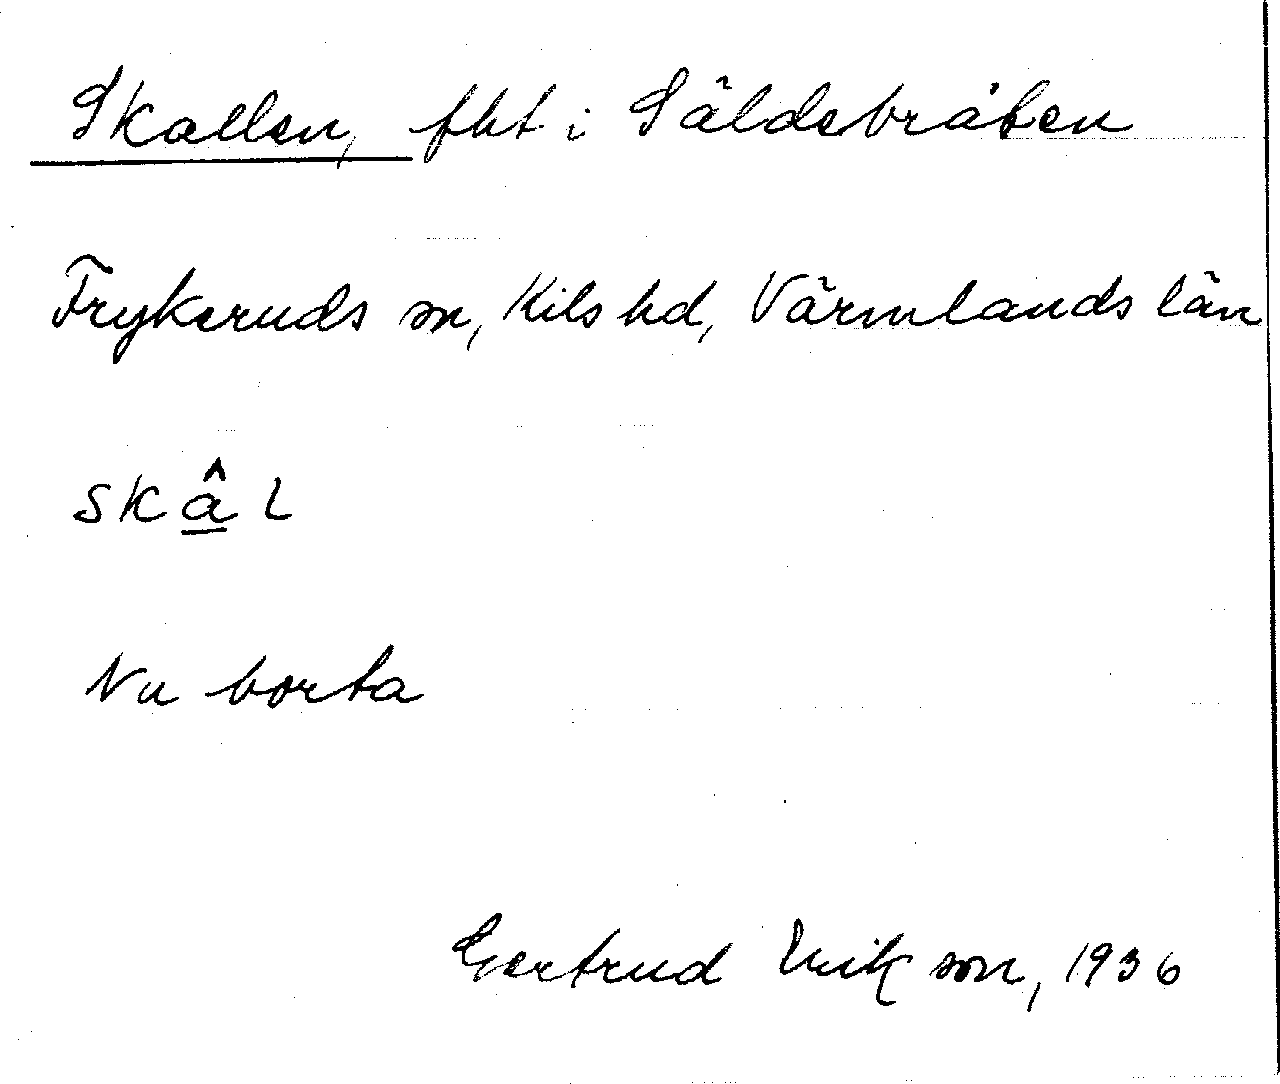 Skallen, fht i Säldebråten
Frykeruds sn, Kils hd, Värmlands län
skâl
Nu borta
Gertrud Erikson, 1936